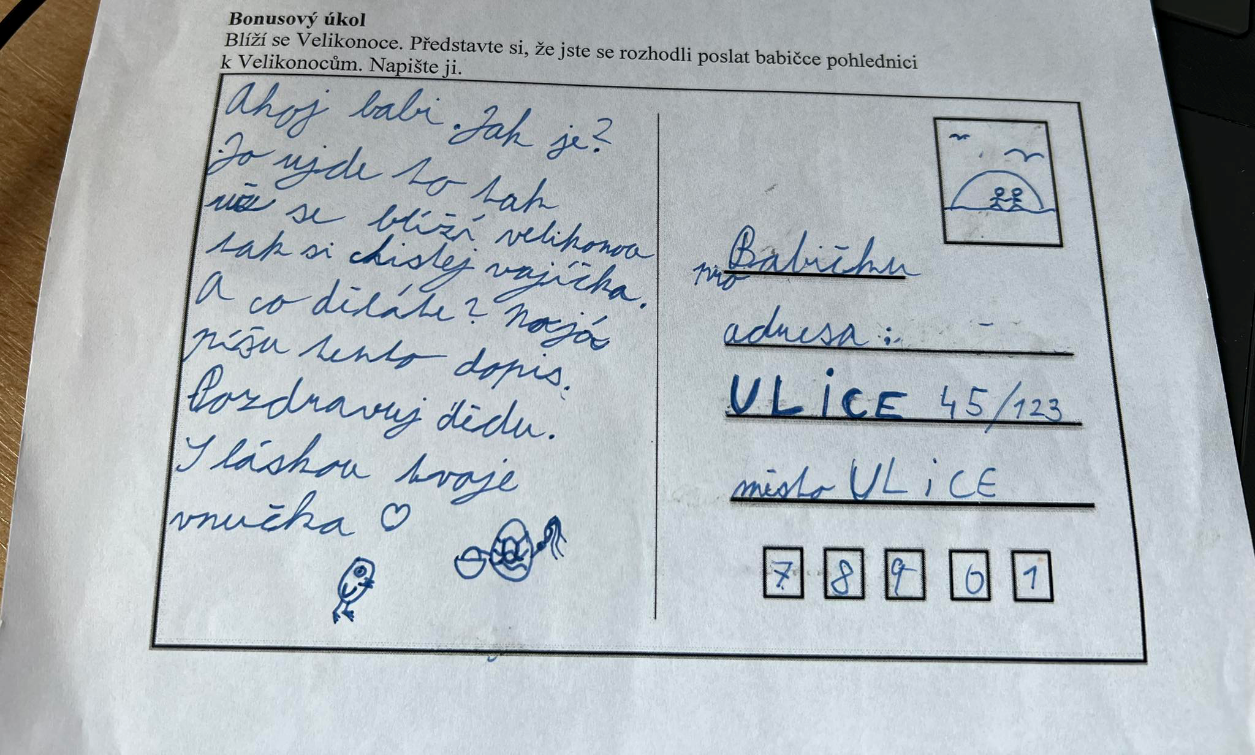 Bonusový úkol
Blíží se Velikonoce. Představte si, že jste se rozhodli poslat babičce pohlednici
k Velikonocům. Napište ji.
Ahoj babi. Jak je?
Jo ujde to tak
už se blíží velikonoce
tak si chistej vajíčka.
A co děláte? No já
píšu tento dopis.
Pozdravuj dědu.
S láskou tvoje
vnučka ♡
pro Babičku
adresa :
ULiCE 45/123
město ULiCE
7 8 9 0 1